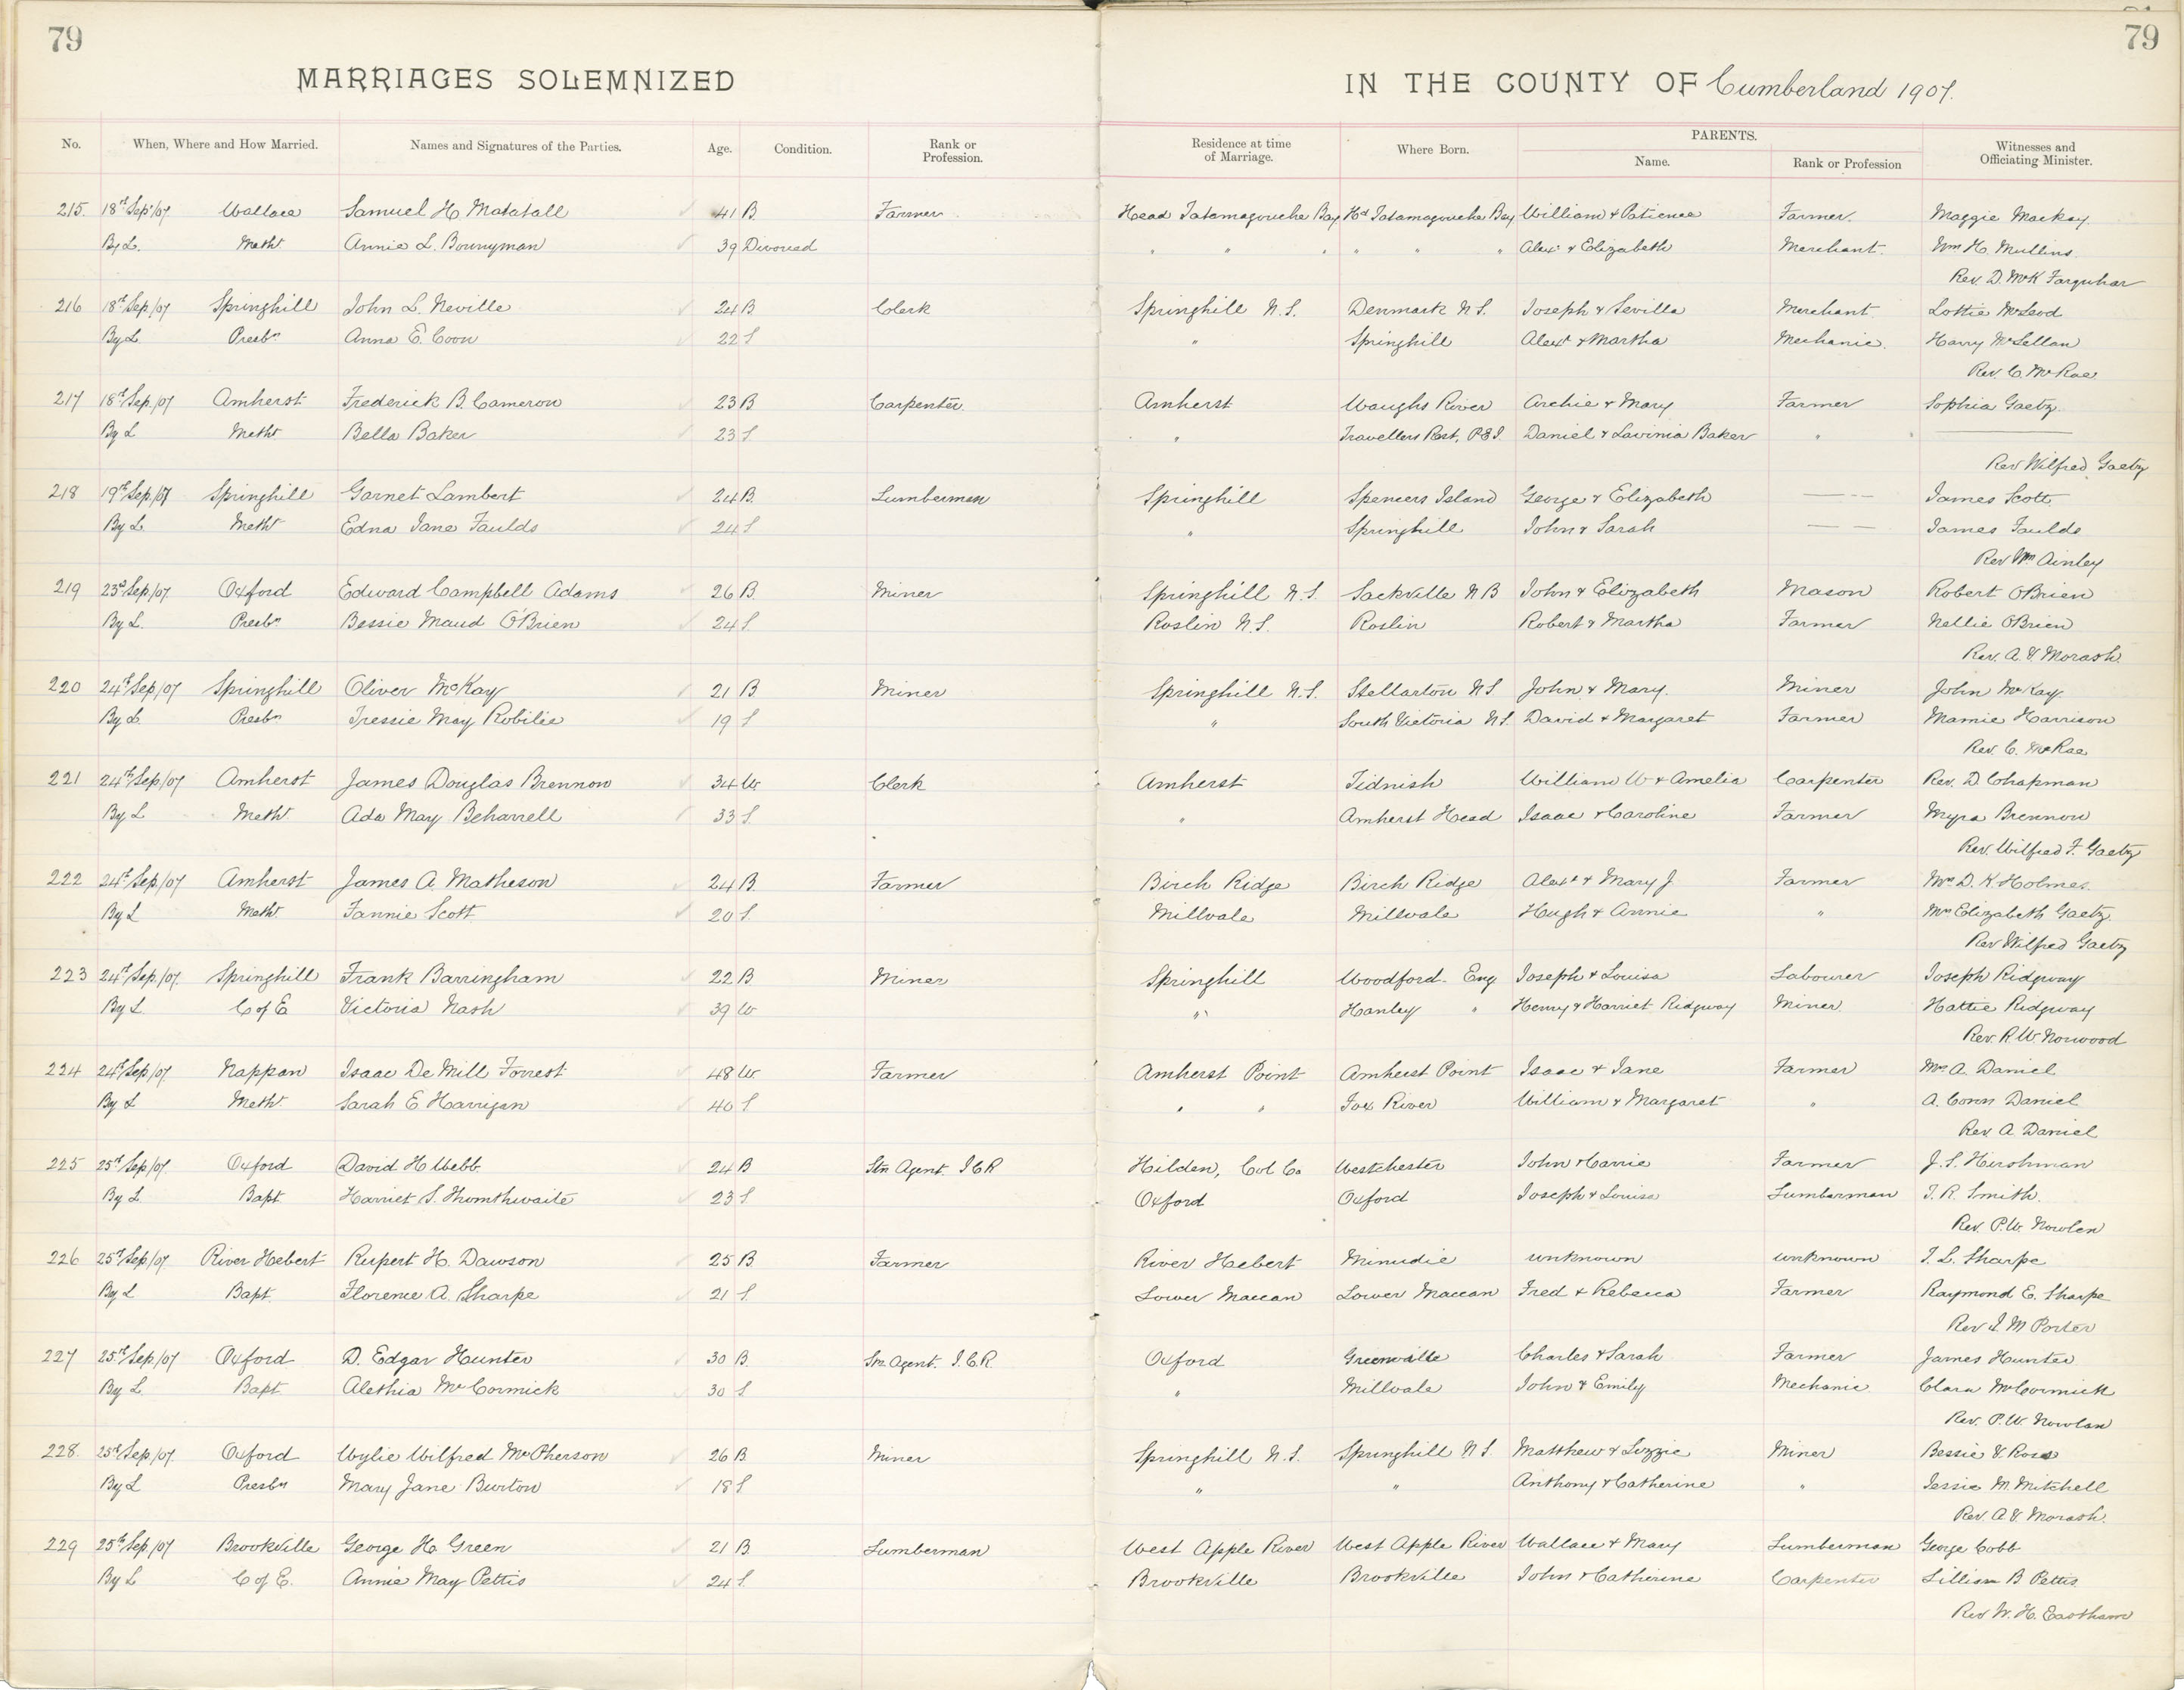 79
79
MARRIAGES SOLEMNIZED IN THE COUNTY OF Cumberland 1907.
No. When, Where and How Married. Names and Signatures of the Parties. Age. Condition. Rank or Profession. Residence at time of Marriage. Where Born. PARENTS. Name. Rank or Profession Witnesses and Officiating Minister.
215. 18th Sep/07 Wallace Samuel H. Matatall 41 B Farmer Head Tatamagouche Bay Hd Tatamagouche Bay William & Patience Farmer. Maggie Mackay.
By L. Meth. Annie L. Bonnyman 39 Divorced " " " " " " Alex. & Elizabeth Merchant. Wm H. Mullins.
Rev. D. McK Farquhar
216 18th Sep/07 Springhill John L. Neville 24 B Clerk Springhill N.S. Denmark N.S. Joseph & Sevilla Merchant Lottie McLeod
By L. Presbn Anna E. Coon 22 S " Springhill Alexr & Martha Mechanic. Harry McLellan
Rev. C. McRae
217 18th Sep./07 Amherst Frederick B. Cameron 23 B. Carpenter. Amherst Waughs River Archie & Mary Farmer Sophia Gaetz.
By L Meth. Bella Baker 23 S " Travellers Rest, P.E.I. Daniel & Lavinia Baker " "
Rev Wilfred Gaetz
218 19th Sep./07 Springhill Garnet Lambert 24 B. Lumberman Springhill Spencers Island George & Elizabeth James Scott
By L. Meth. Edna Jane Faulds 24 S " Springhill John & Sarah James Faulds
Rev Wm Ainley
219 23d Sep/07 Oxford Edward Campbell Adams 26 B. Miner Springhill N.S. Sackville N B John & Elizabeth Mason Robert O'Brien
By L. Presbn Bessie Maud O'Brien 24 S. Roslin N.S. Roslin Robert & Martha Farmer Nellie O'Brien
Rev. A. V. Morash.
220 24th Sep/07 Springhill Oliver McKay 21 B Miner Springhill N.S. Stellarton N S John & Mary. Miner John McKay.
By L. Presbn Tressie May Robilie 19 S " South Victoria N.S. David & Margaret Farmer Mamie Harrison
Rev. C. McRae
221 24th Sep/07 Amherst James Douglas Brennow 34 W Clerk Amherst Tidnish William W & Amelia Carpenter Rev. D Chapman
By L Meth. Ada May Beharrell 33 S. " Amherst Head Isaac & Caroline Farmer Myra Brennow
Rev. Wilfred F. Gaetz
222 24th Sep/07 Amherst James A. Matheson 24 B. Farmer Birch Ridge Birch Ridge Alexr & Mary J. Farmer Mrs D. K. Holmes.
By L Meth. Fannie Scott 20 S. Millvale Millvale Hugh & Annie " Mrs Elizabeth Gaetz.
Rev Wilfred Gaetz
223 24th Sep./07. Springhill Frank Barringham 22 B Miner Springhill Woodford. Eng Joseph & Louisa Labourer Joseph Ridgway
By L. C of E Victoria Nash 39 W " Hanley " Henry & Harriet Ridgway Miner Hattie Ridgway
Rev. R. W. Norwood
224 24th Sep/07. Nappan Isaac De Mill Forrest 48 W Farmer Amherst Point Amherst Point Isaac & Jane Farmer Mrs A. Daniel
By L Meth. Sarah E. Harrigan 40 S " " Fox River William & Margaret " A. Conn Daniel
Rev. A Daniel
225 25th Sep/07. Oxford David H. Webb 24 B Stn Agent. I C R Hilden, Col Co Westchester John & Carrie Farmer J. S. Hirshman
By L. Bapt. Harriet S. Thomthwaite 23 S Oxford Oxford Joseph & Louisa Lumberman T. R. Smith.
Rev. P.W. Nowlen
226 25th Sep/07. River Hebert Rupert H. Dawson 25 B. Farmer River Hebert Minudie unknown unknown I. L. Sharpe
By L Bapt. Florence A. Sharpe 21 S. Lower Maccan Lower Maccan Fred & Rebecca Farmer Raymond E. Sharpe
Rev J. M Porter
227 25th Sep./07 Oxford D. Edgar Hunter 30 B. Stn Agent. I.C.R. Oxford Greenville Charles & Sarah Farmer James Hunter
By L. Bapt. Alethia McCormick 30 S " Millvale John & Emily Mechanic Clara McCormick
Rev. P.W. Nowlan
228. 25th Sep./07. Oxford Wylie Wilfred McPherson 26 B. Miner Springhill N.S. Springhill N.S. Matthew & Lizzie Miner Bessie V. Ross
By L Presbn Mary Jane Burton 18 S " " Anthony & Catherine " Jessie M. Mitchell
Rev. A V. Morash.
229 25th Sep./07 Brookville George H. Green 21 B. Lumberman West Apple River West Apple River Wallace & Mary Lumberman George Cobb
By L C of E. Annie May Pettis 24 S. Brookville Brookville John & Catherine Carpenter Lillian B Pettis.
Rev W. H. Eastham